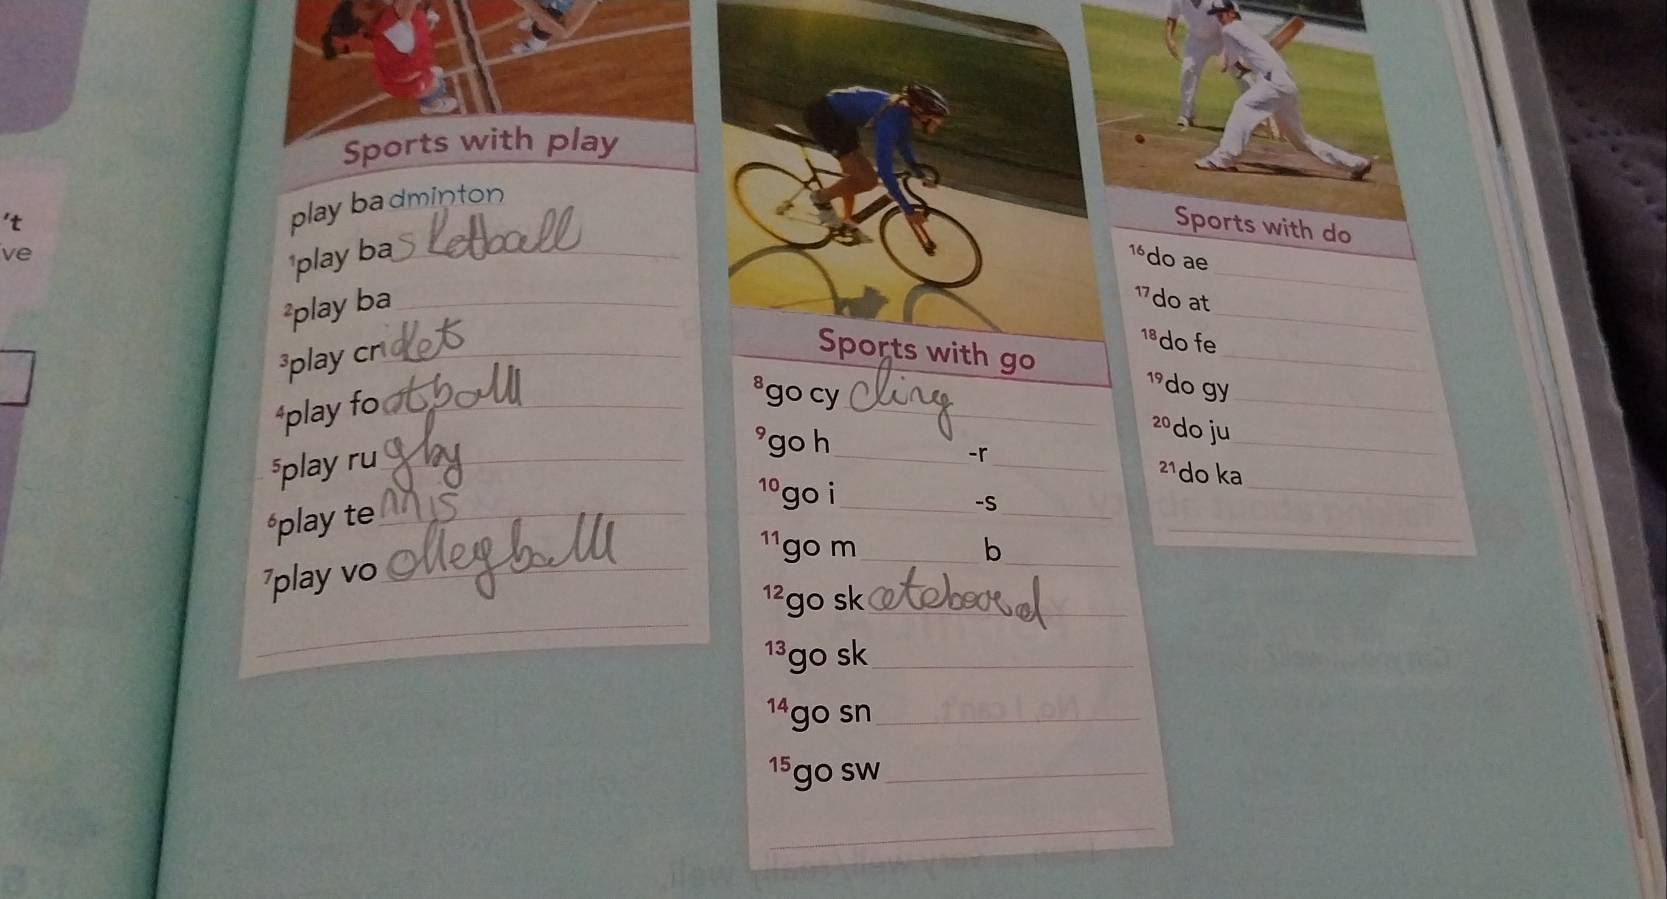 't
ve
Sports with play
play badminton
1play basketball
2play ba
3play crickets
4play football
5play rugby
6play tennis
7play vo olleyball
Sports with go
8go cy cling
9go h -r
10go i -s
11go m b
12go skateboard
13go sk
14go sn
15go sw
Sports with do
16do ae
17do at
18do fe
19do gy
20do ju
21do ka